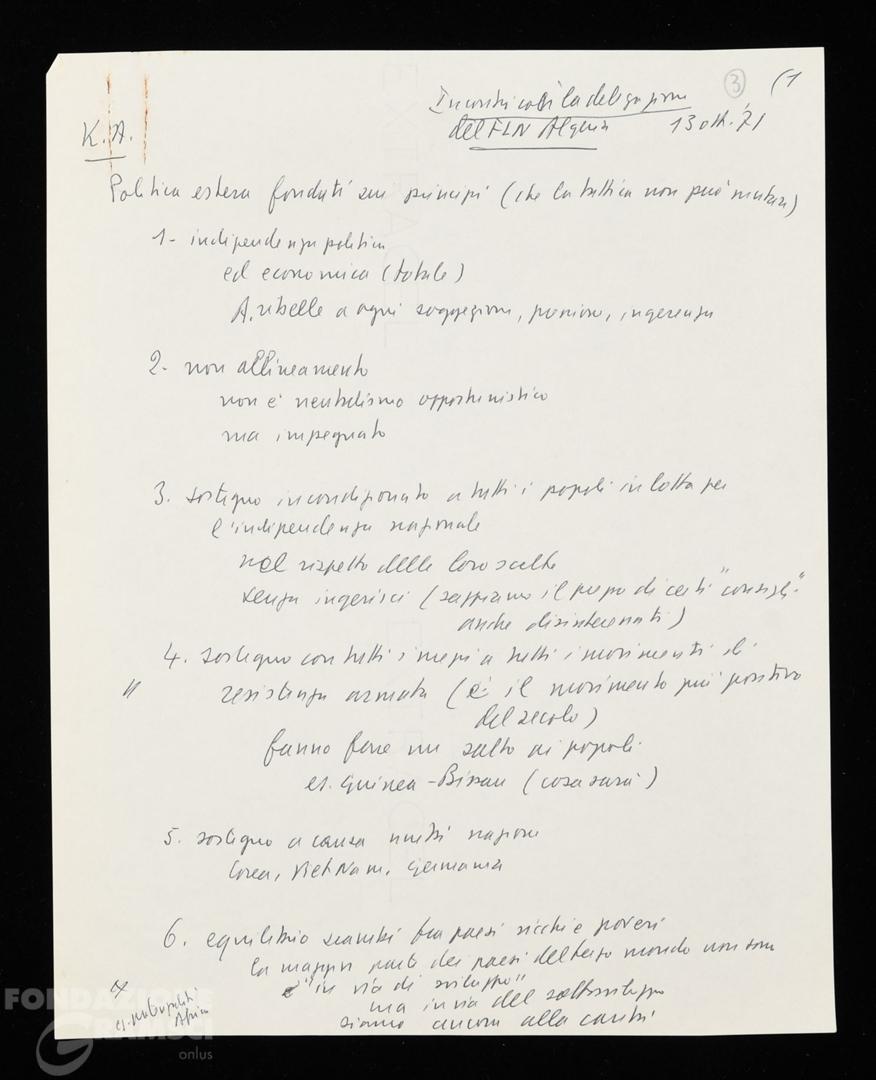 3 (1
Incontri con la delegazione
del FLN Algeria 13 ott. '71
K. A.
Politica estera fondata su principi (che la tattica non può mutare)
1- indipendenza politica
ed economica (totale)
A. ribelle a ogni soggezione, pressione, ingerenza
2- non allineamento
non è neutralismo opportunistico
ma impegnato
3. sostegno incondizionato a tutti i popoli in lotta per
l'indipendenza nazionale
nel rispetto delle loro scelte
senza ingerirci (sappiamo il prezzo di certi "consigli"
anche disinteressati)
4. sostegno con tutti i mezzi a tutti i movimenti di
" resistenza armata (è il movimento più positivo
del secolo)
fanno fare un salto ai popoli
es. Guinea-Bissau (cosa sarà)
5. sostegno a causa unità nazione
Corea, Viet Nam, Germania
6. equilibrio scambi fra paesi ricchi e poveri
la maggior parte dei paesi del terzo mondo non sono
"in via di sviluppo"
ma in via del sottosviluppo
siamo ancora alla carità
es.
Africa
FONDAZIONE
GRAMSCI
onlus